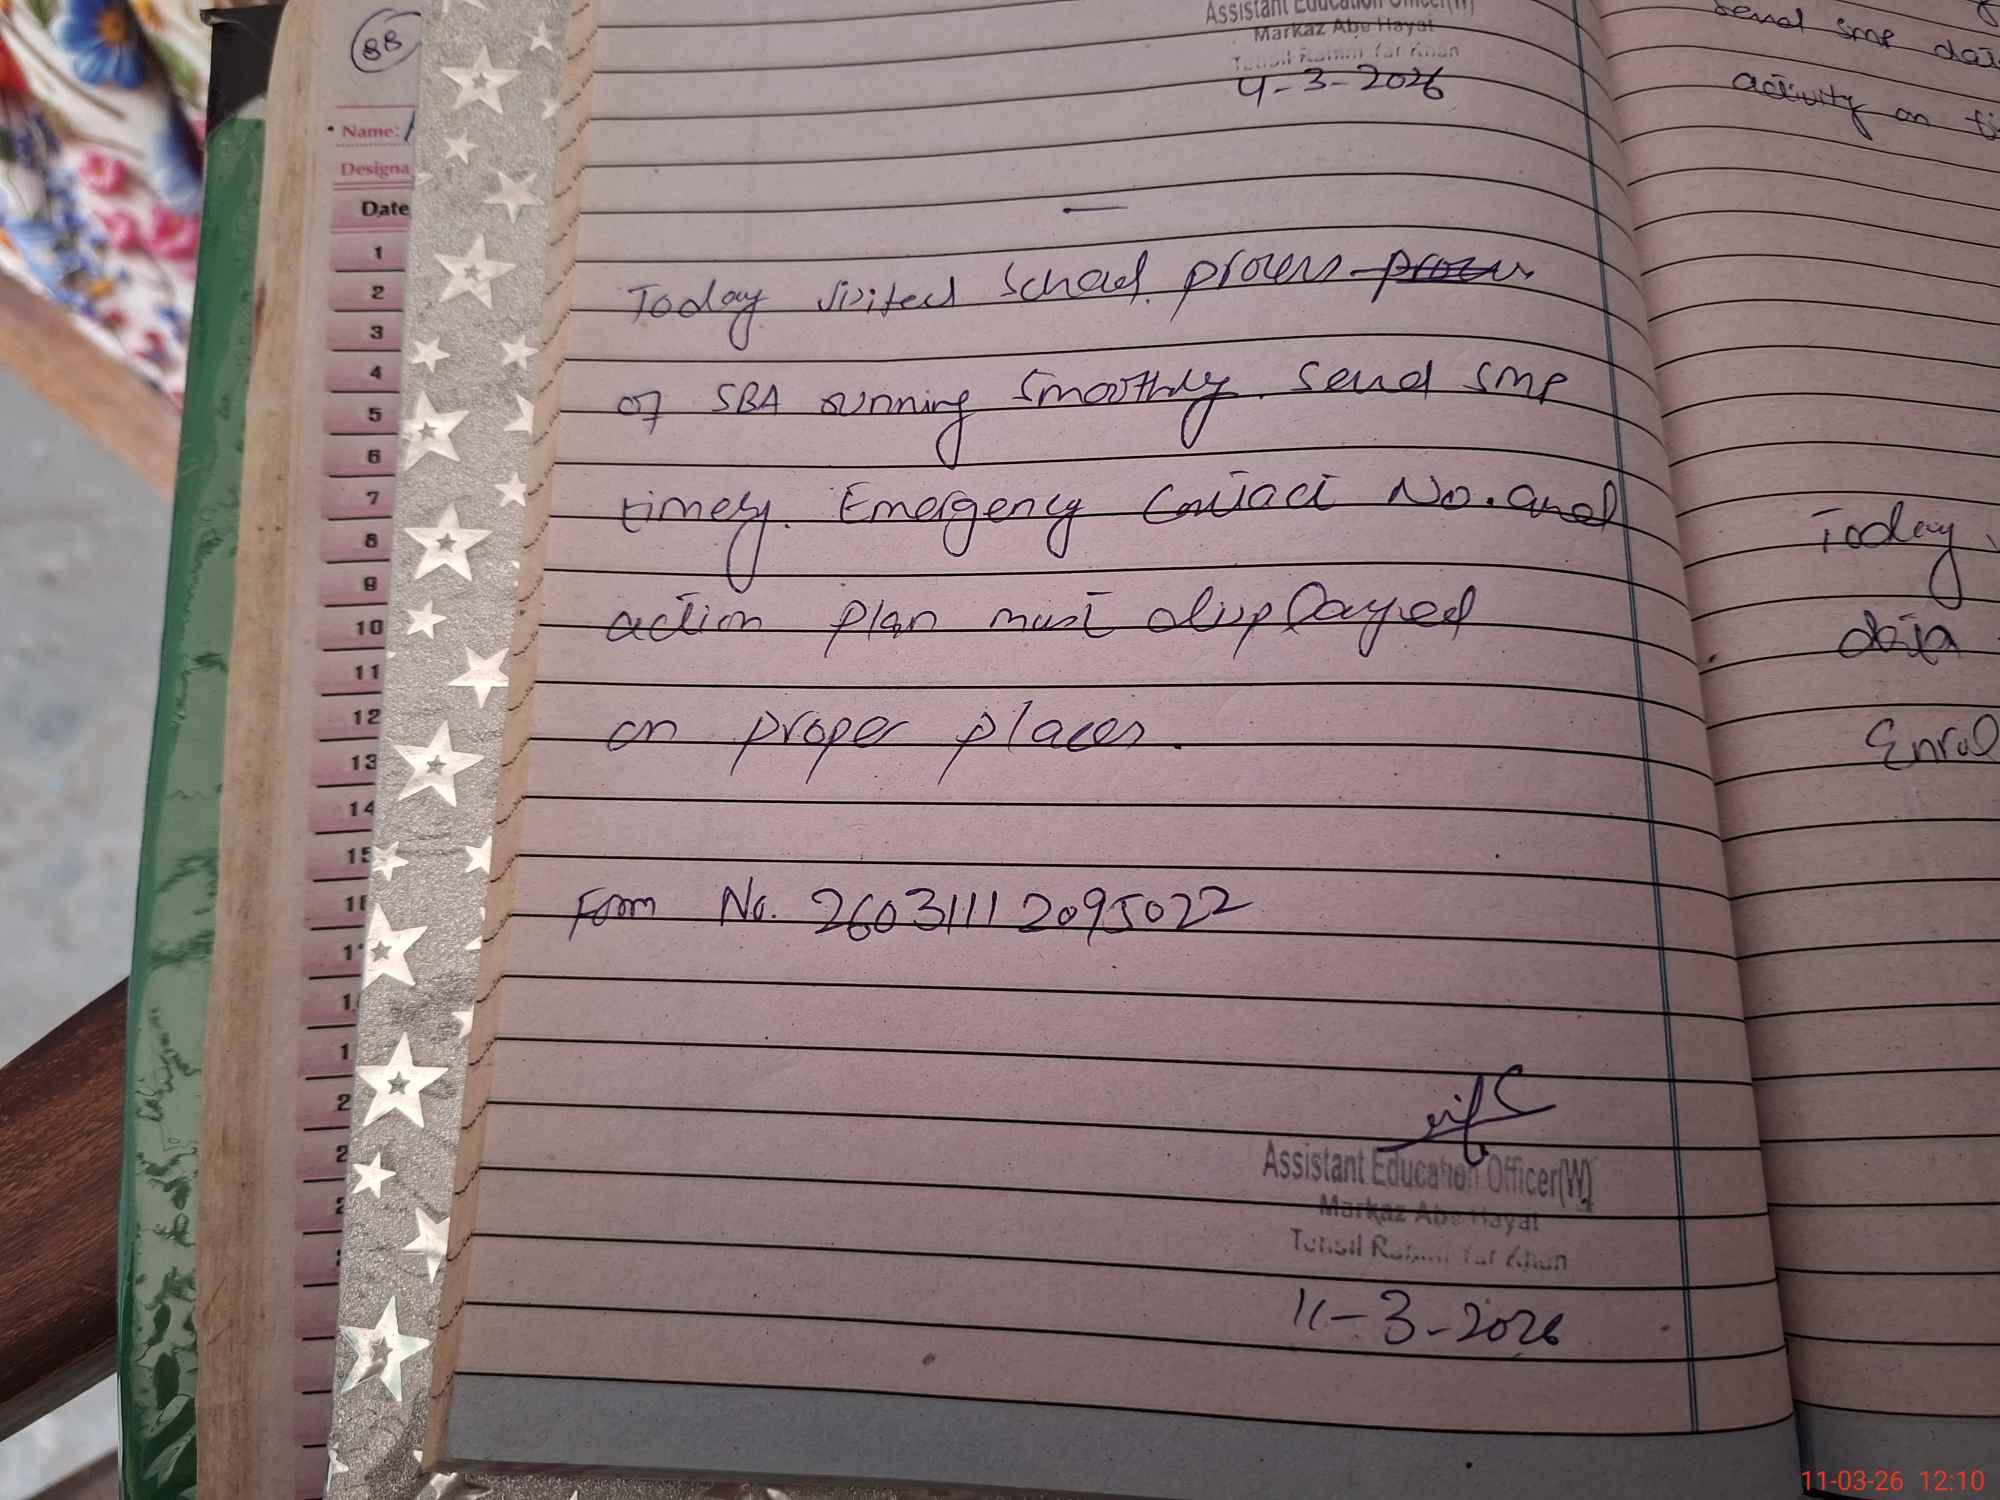 88
Name:
Designa
Date
1
2
3
4
5
6
7
8
9
10
11
12
13
14
15
Assistant Education Officer(W)
Markaz Abe Hayat
Tehsil Rahim Yar Khan
4-3-2026
Today visited School. process process
of SBA running smoothly. Send smp
timely. Emergency Contact No. and
action plan must displayed
on proper places.
Form No. 2603111 2095022
Assistant Education Officer(W)
Markaz Abe Hayat
Tehsil Rahim Yar Khan
11-3-2026
send smp data
activity on
Today
data
Enrol
11-03-26 12:10